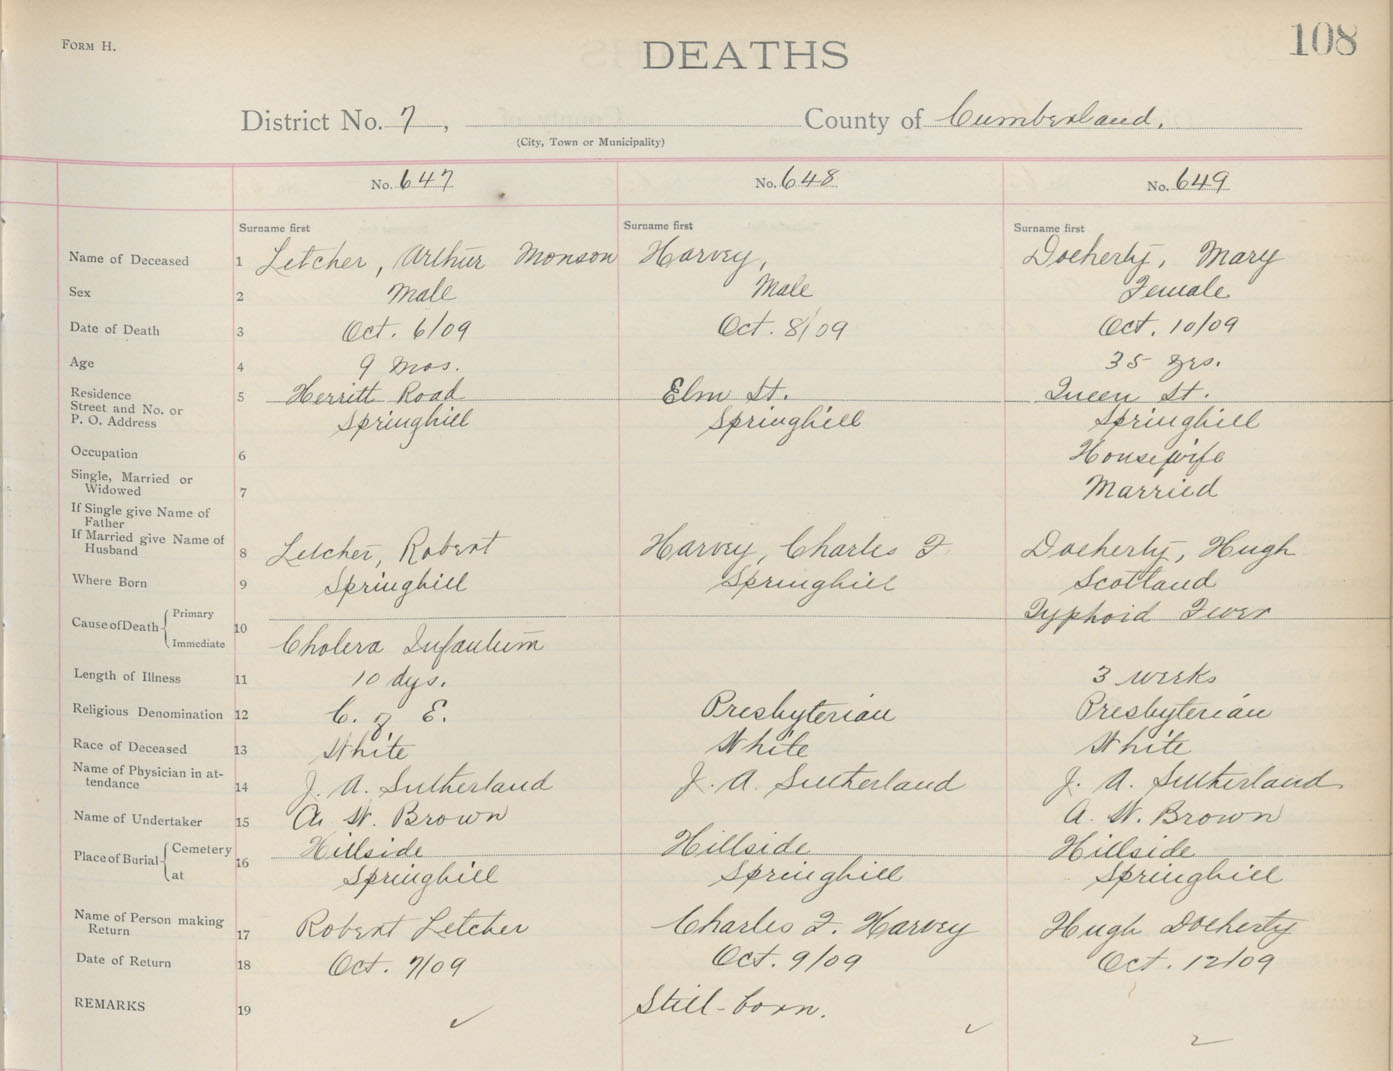 FORM H.
DEATHS
108
District No. 7, County of Cumberland.
(City, Town or Municipality)
No. 647 No. 648 No. 649
Surname first Surname first Surname first
Name of Deceased 1 Letcher, Arthur Monson Harvey, Docherty, Mary
Sex 2 Male Male Female
Date of Death 3 Oct. 6/09 Oct. 8/09 Oct. 10/09
Age 4 9 mos. 35 yrs.
Residence 5 Herritt Road Elm St. Queen St.
Street and No. or
P. O. Address Springhill Springhill Springhill
Occupation 6 Housewife
Single, Married or
Widowed 7 Married
If Single give Name of
Father
If Married give Name of
Husband 8 Letcher, Robert Harvey, Charles F Docherty, Hugh
Where Born 9 Springhill Springhill Scotland
Cause of Death 10 Primary Typhoid Fever
Immediate Cholera Infantum
Length of Illness 11 10 dys. 3 weeks
Religious Denomination 12 C. of E. Presbyterian Presbyterian
Race of Deceased 13 White White White
Name of Physician in at-
tendance 14 J. A. Sutherland J. A. Sutherland J. A. Sutherland
Name of Undertaker 15 A. W. Brown A. W. Brown
Place of Burial 16 Cemetery Hillside Hillside Hillside
at Springhill Springhill Springhill
Name of Person making
Return 17 Robert Letcher Charles F. Harvey Hugh Docherty
Date of Return 18 Oct. 7/09 Oct. 9/09 Oct. 12/09
REMARKS 19 Still-born.